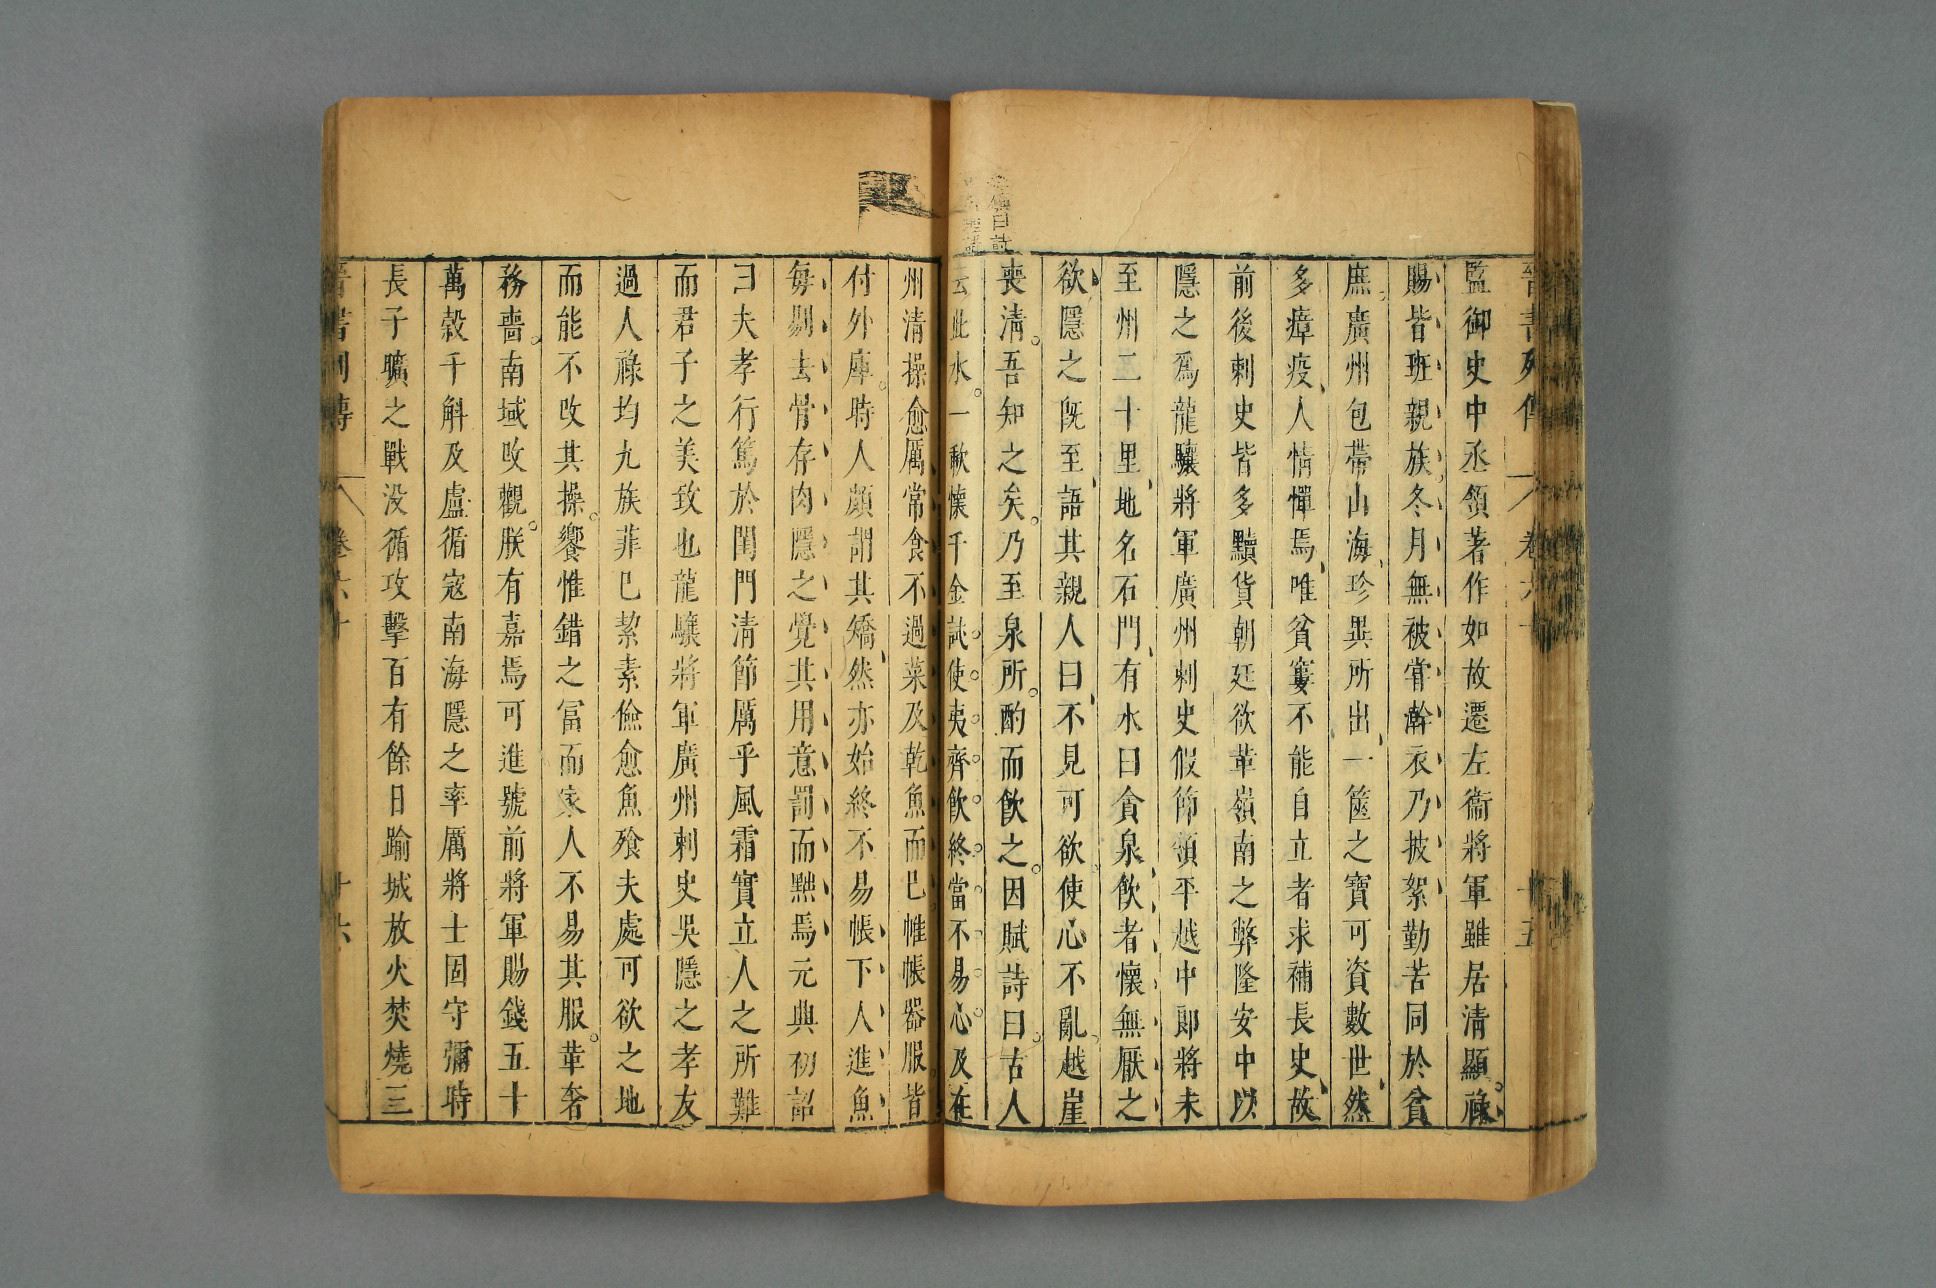 晉書列傳 卷六十 十五
監御史中丞領著作如故遷左衞將軍雖居清顯祿
賜皆班親族冬月無被嘗澣衣乃披絮勤苦同於貧
庶廣州包帶山海珍異所出一篋之寶可資數世然
多瘴疫人情憚焉唯貧窶不能自立者求補長史故
前後刺史皆多黷貨朝廷欲革嶺南之弊隆安中以
隱之爲龍驤將軍廣州刺史假節領平越中郎將未
至州二十里地名石門有水曰貪泉飲者懷無厭之
欲隱之旣至語其親人曰不見可欲使心不亂越崖
喪淸吾知之矣乃至泉所酌而飲之因賦詩曰古人
云此水一歃懷千金試使夷齊飲終當不易心及在
州清操愈厲常食不過菜及乾魚而已帷帳器服皆
付外庫時人頗謂其矯然亦始終不易帳下人進魚
每剔去骨存肉隱之覺其用意罰而黜焉元興初詔
曰夫孝行篤於閨門清節厲乎風霜實立人之所難
而君子之美致也龍驤將軍廣州刺史吳隱之孝友
過人祿均九族菲己絜素儉愈魚飱夫處可欲之地
而能不改其操饗惟錯之富而家人不易其服革奢
務嗇南域改觀朕有嘉焉可進號前將軍賜錢五十
萬穀千斛及盧循寇南海隱之率厲將士固守彌時
長子曠之戰没循攻擊百有餘日踰城放火焚燒三
晉書列傳 卷六十 十六